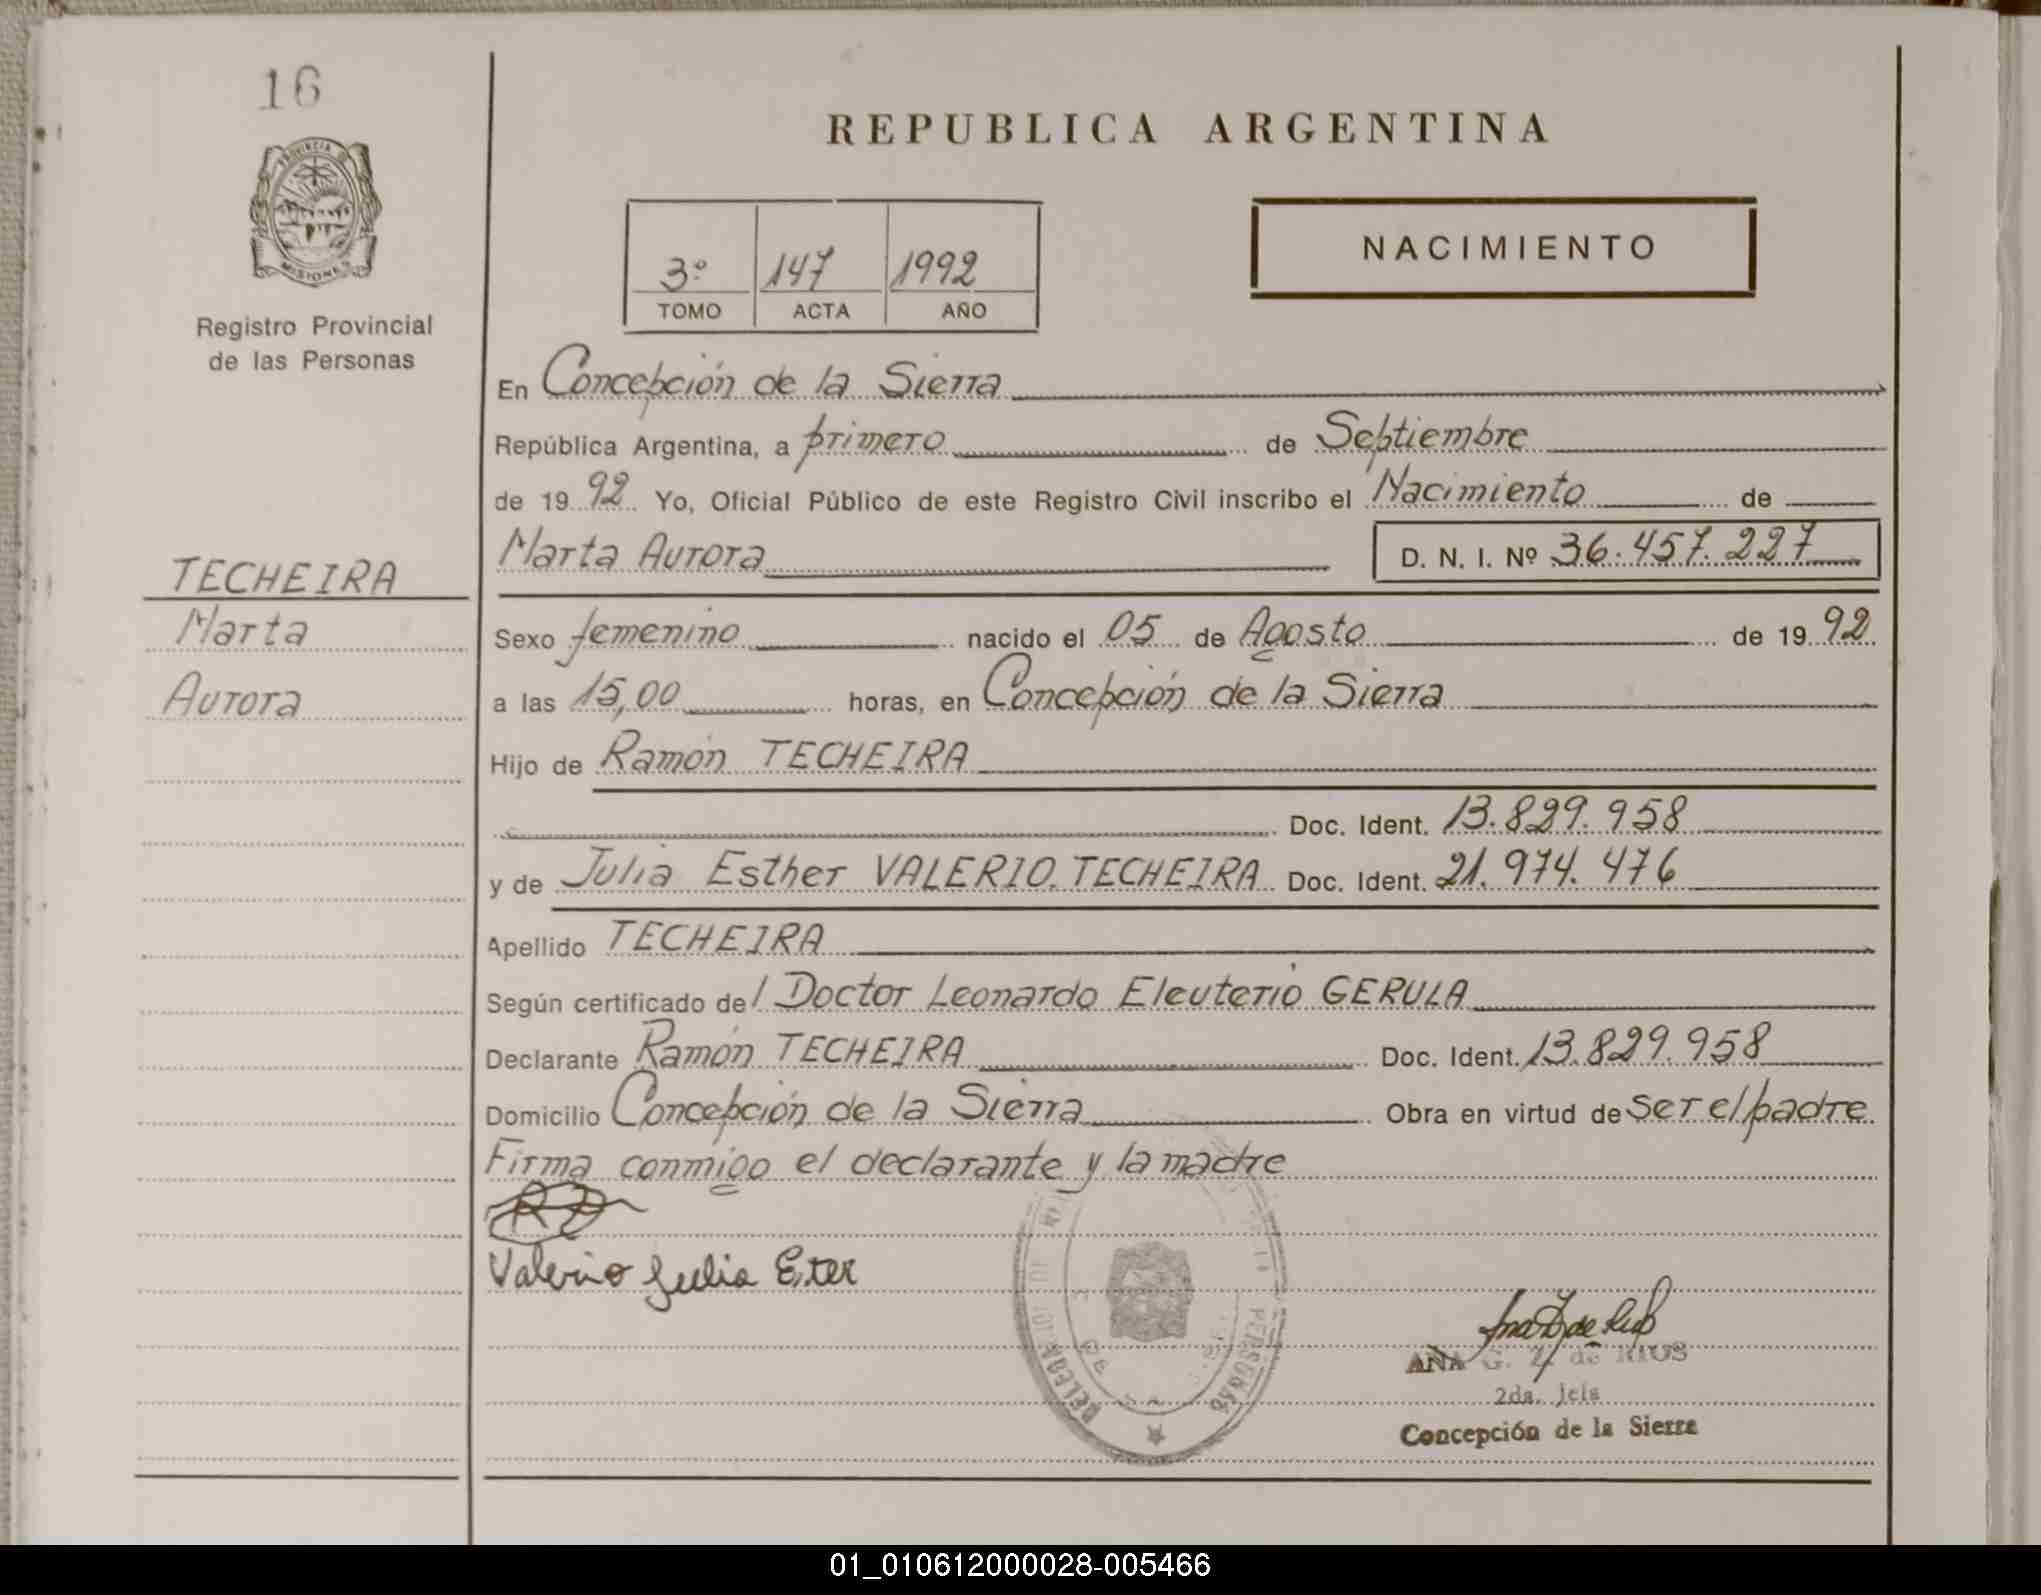 16
REPUBLICA ARGENTINA
PROVINCIA DE
MISIONES
Registro Provincial
de las Personas
3º 147 1992
TOMO ACTA AÑO
NACIMIENTO
En Concepción de la Sierra
República Argentina, a primero de Septiembre
de 19 92 Yo, Oficial Público de este Registro Civil inscribo el Nacimiento de
Marta Aurora D. N. I. Nº 36.457.227
TECHEIRA
Marta
Aurora
Sexo femenino nacido el 05 de Agosto de 19 92
a las 15,00 horas, en Concepción de la Sierra
Hijo de Ramón TECHEIRA
Doc. Ident. 13.829.958
y de Julia Esther VALERIO. TECHEIRA Doc. Ident. 21.974.476
Apellido TECHEIRA
Según certificado del Doctor Leonardo Eleuterio GERULA
Declarante Ramón TECHEIRA Doc. Ident. 13.829.958
Domicilio Concepción de la Sierra Obra en virtud de ser el padre
Firma conmigo el declarante y la madre
Valerio Julia Ester
ANA G. Z. de RIUS
2da. Jefa
Concepción de la Sierra
01_010612000028-005466